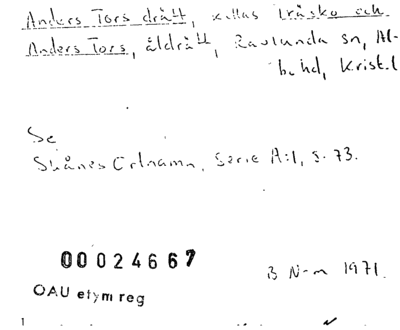 Anders Tors drätt, kallas Träsko och
Anders Tors, åldrätt, Ravlunda sn, Al-
bo hd, Krist.l
Se
Skånes Ortnamn, Serie A:1, s. 73.
00024667
B N-m 1971.
OAU etym reg